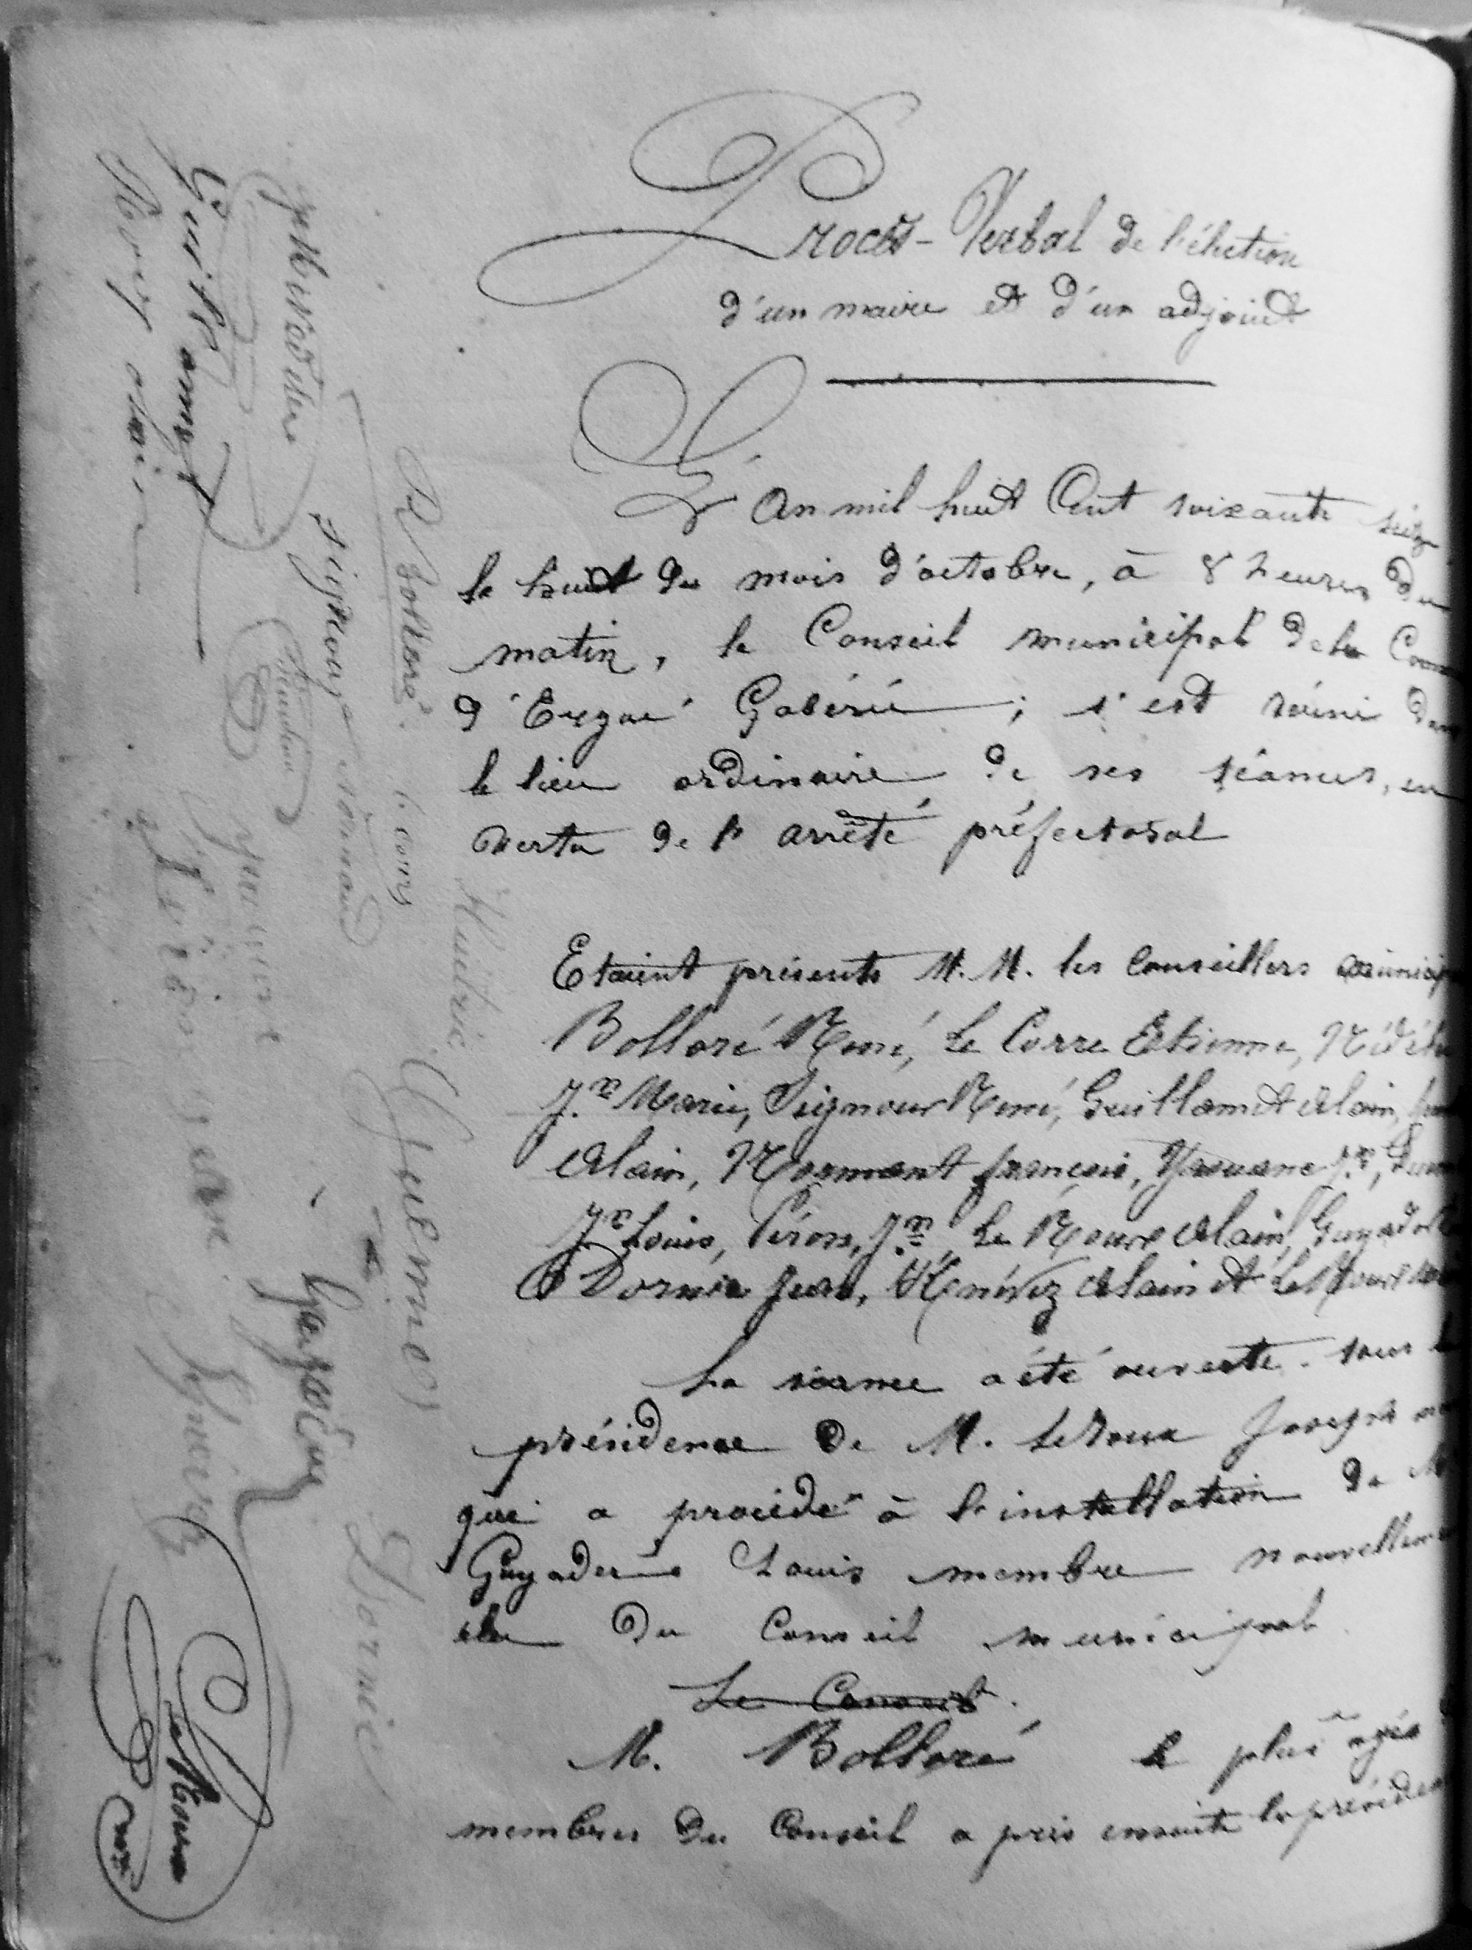 Procès-Verbal de l'élection
d'un maire et d'un adjoint
L'An mil huit Cent soixante seize
le huit du mois d'octobre, à 8 heures du
matin, le Conseil municipal de la Com
d'Ergué Gabéric ; s'est réuni dans
le lieu ordinaire de ses séances, en
vertu de l'arrêté préfectoral
Etaient présents M. M. les conseillers municip
Bolloré René, Le Corre Etienne, Nédélec
Jn Marie, Seignour René, Guillamet Alain,
Alain, Mormant françois, Yaouanc Jn,
Jn Louis, Péron, Jn, Le Roux Alain, Guyader
Dornic Jean, Kénévez Alain et Le Roux
La séance a été ouverte sous la
présidence de M. Le Roux Joseph
qui a procédé à l'installation de M
Guyader Louis membre nouvellement
élu du Conseil municipal
Le Conseil.
M. Bolloré le plus agés d
membres du Conseil a pris ensuite la présiden
R Bolloré
le Corre
Hautric
Seignour
Guillamet
Rouz alain
yaouanc
Dornic
Le Roux